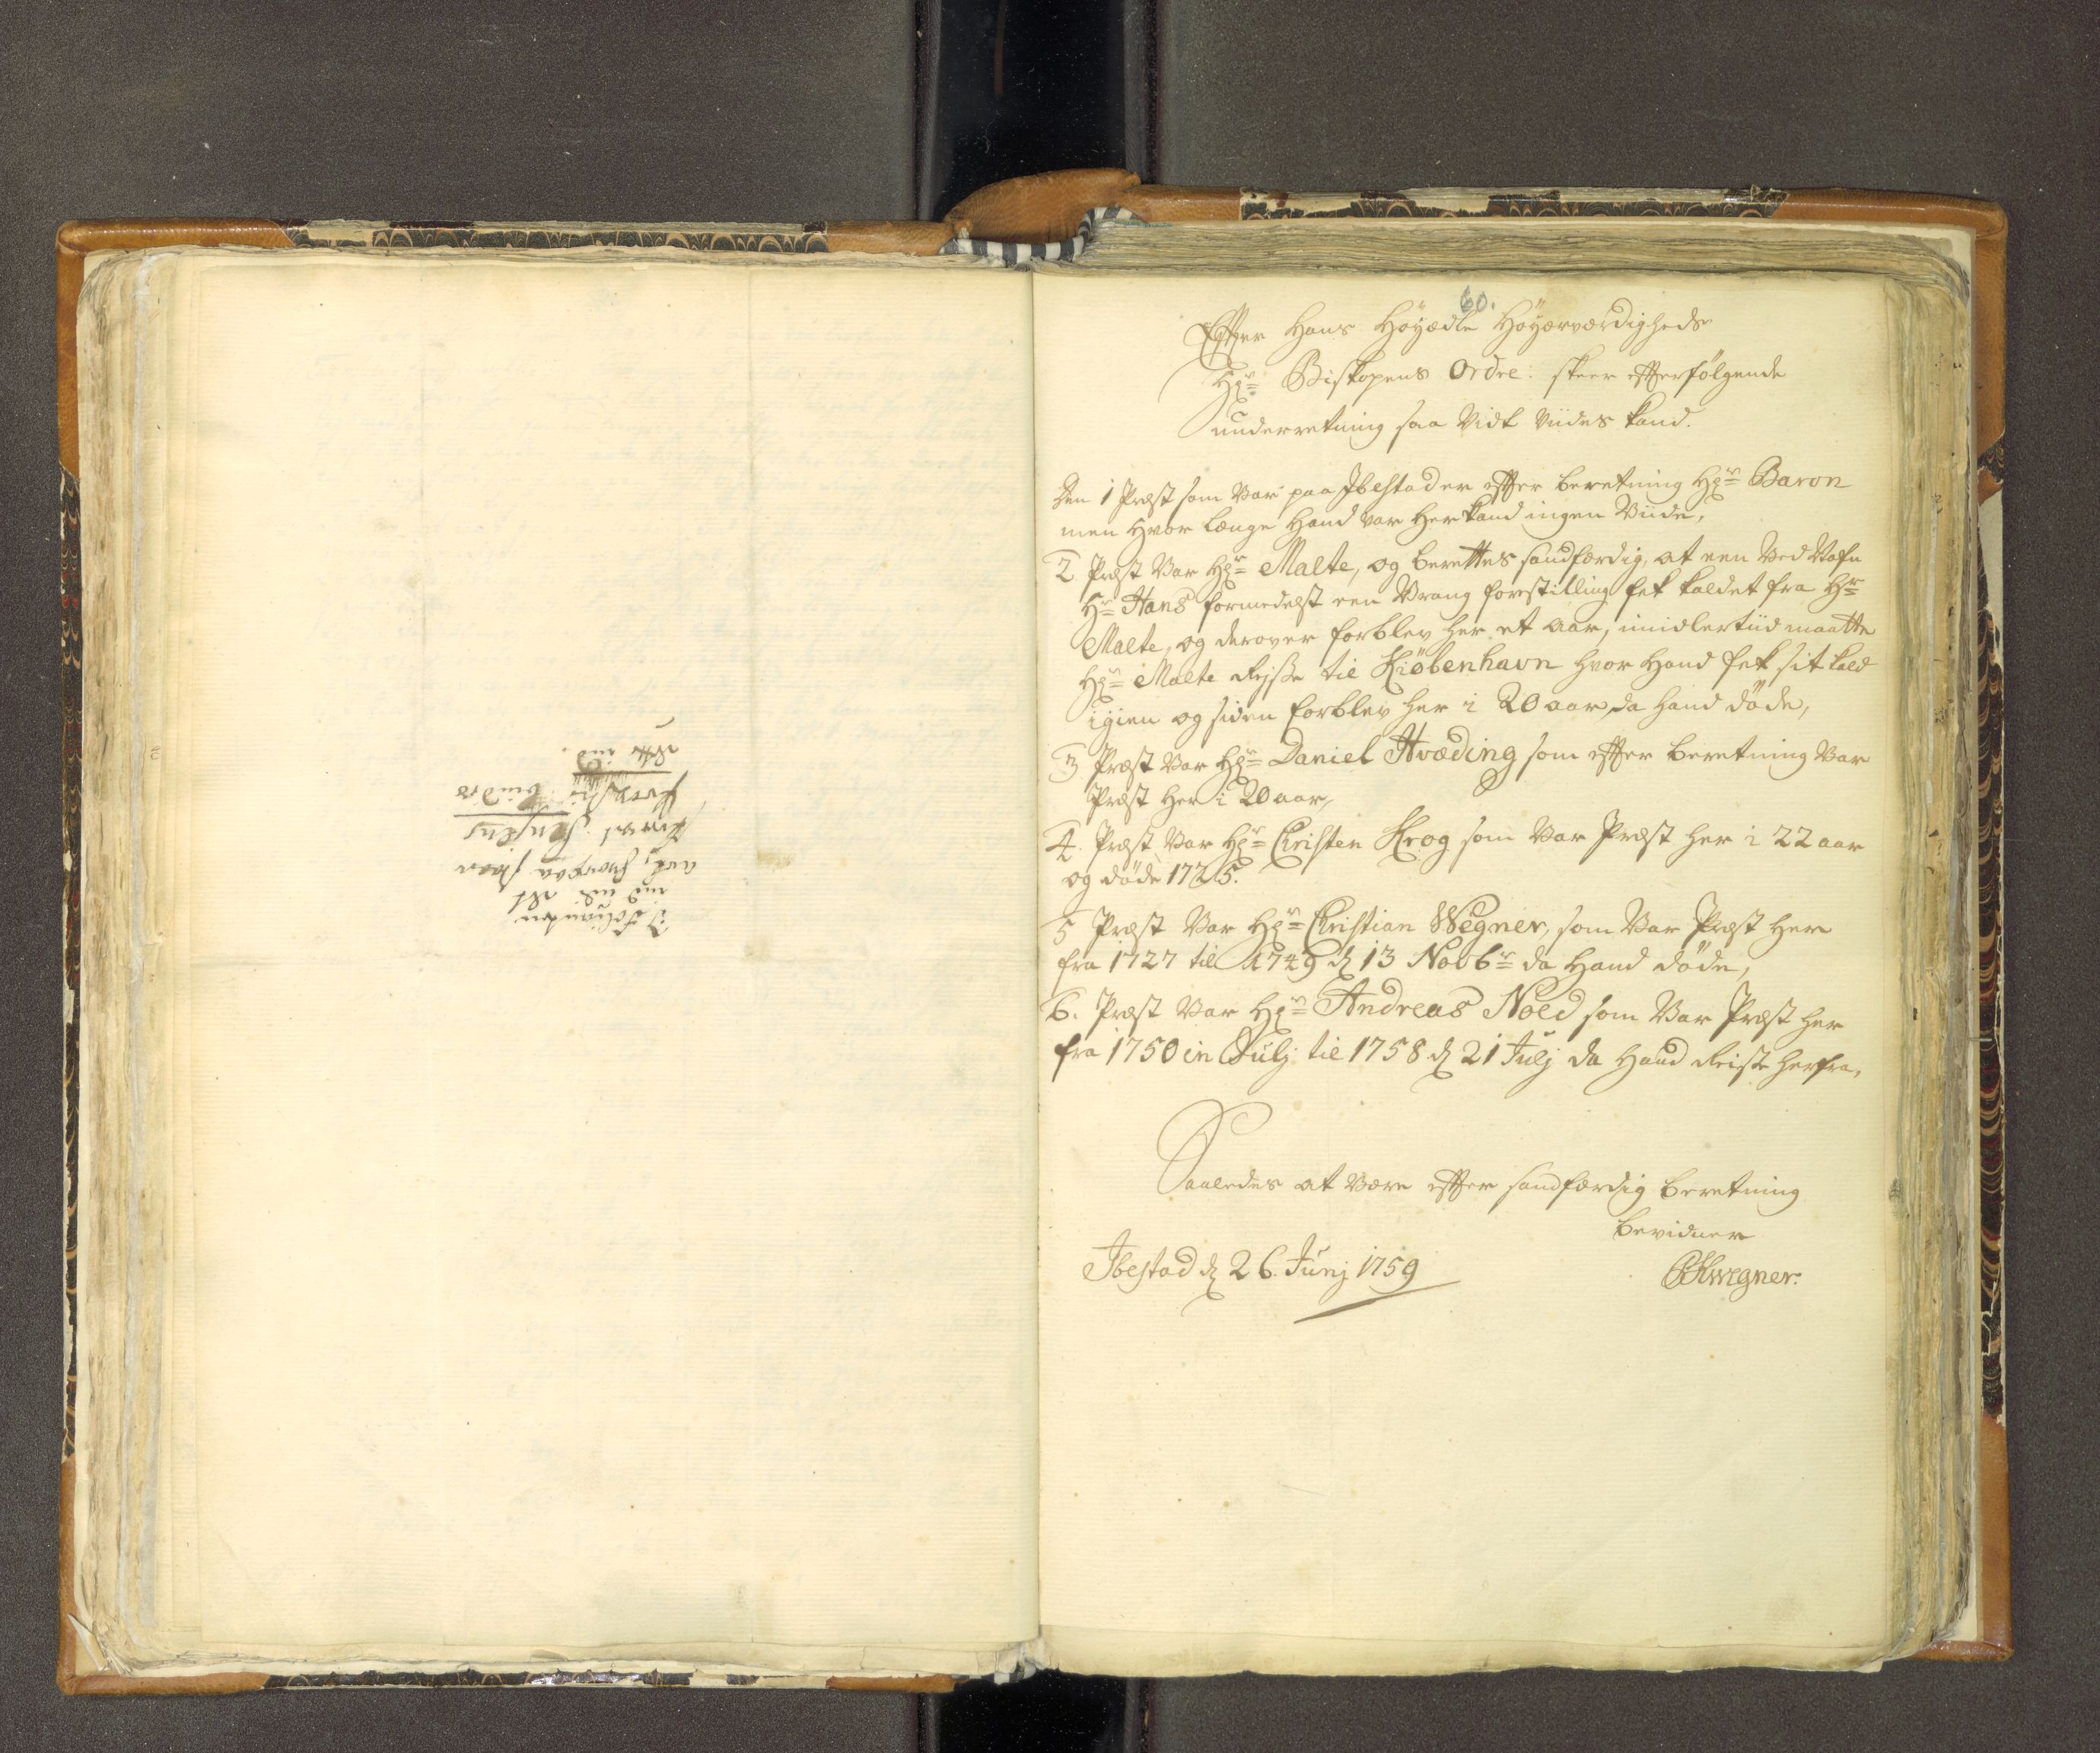 60.
Effter Hans Höyædle Höyærværdigheds
Hr Biskopens Ordre. skeer efterfølgende
underretning saa Vidt Viides kand.
Den 1 Præst som Var paa Ibestad er effter beretning Hr Baron
men Hvor længe Hand var her kand ingen Viide,
2 Præst Var Hr Malte, og berettes sandfærdig, at een Ved Nafn
Hr Hans formedelst een Vrang forestilling fek kaldet fra Hr
Malte, og derover forblev her et aar, imidlertiid maatte
Hr Malte Rejse til Kiöbenhavn hvor Hand fek sit kald
igien og siden forblev her i 20 aar, da hand döde,
3 Præst Var Hr Daniel Hvæding som effter beretning Var
Præst her i 20 aar,
4. Præst Var Hr Christen Krog som Var Præst her i 22 aar
og döde 1725.
5 Præst Var Hr Christian Wegner, som Var Præst her
fra 1727 til 1749 d 13 Novbr da Hand döde,
6. Præst Var Hr Andreas Nold som Var Præst her
fra 1750 in Julj til 1758 d 21 Julj da Hand Reiste herfra,
Saaledes at Være effter sandfærdig beretning
bevidner
Ibestad d 26. Junj 1759
Wegner.